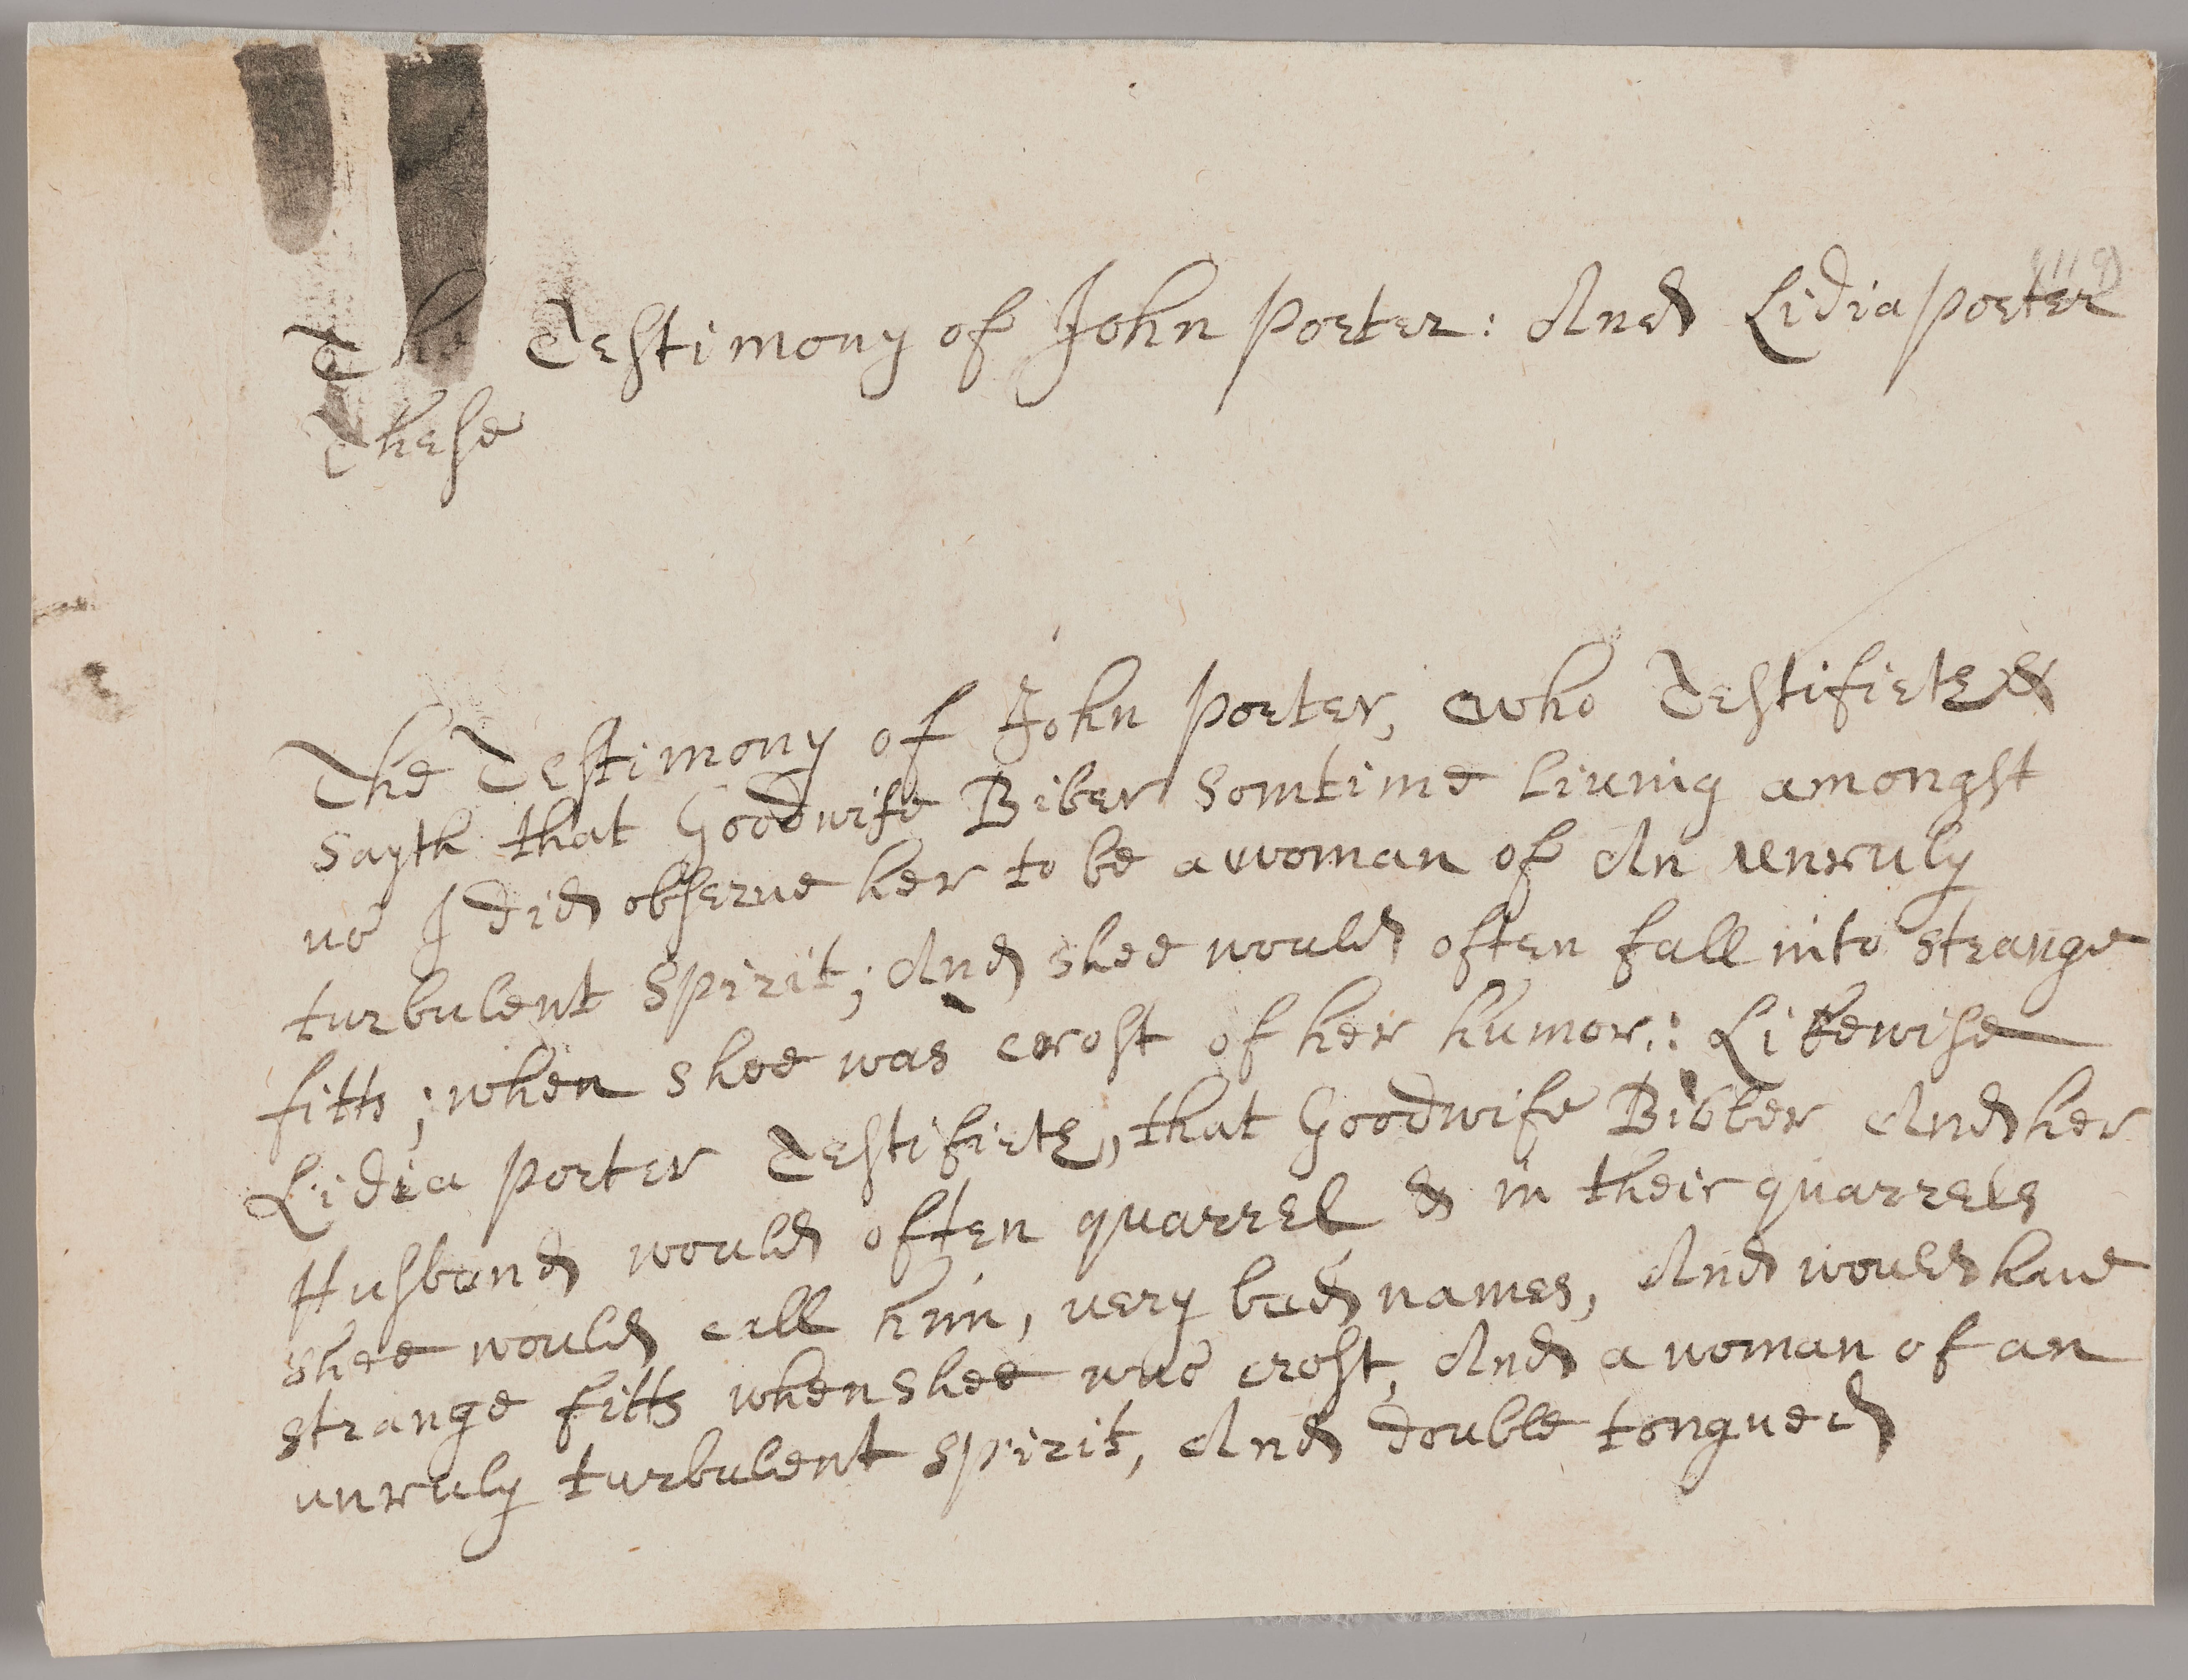 The Testimony of John Porter: And Lidia Porter
These
The Testimony of John Porter, who Testifieth &
Sayth that Goodwife Biber Somtime liuing amongst
us I did obserue her to be a woman of An unruly
turbulent Spirit; And shee would often fall into strange
fitts; when shee was crost of her humor: Likewise
Lidia Porter Testifieth, that Goodwife Bibber And her
Husband would often quarrel & in their quarrels
shee would call him, very bad names, And would haue
strange fitts when shee was crost, And a woman of an
unruly turbulent spirit, And double tongued